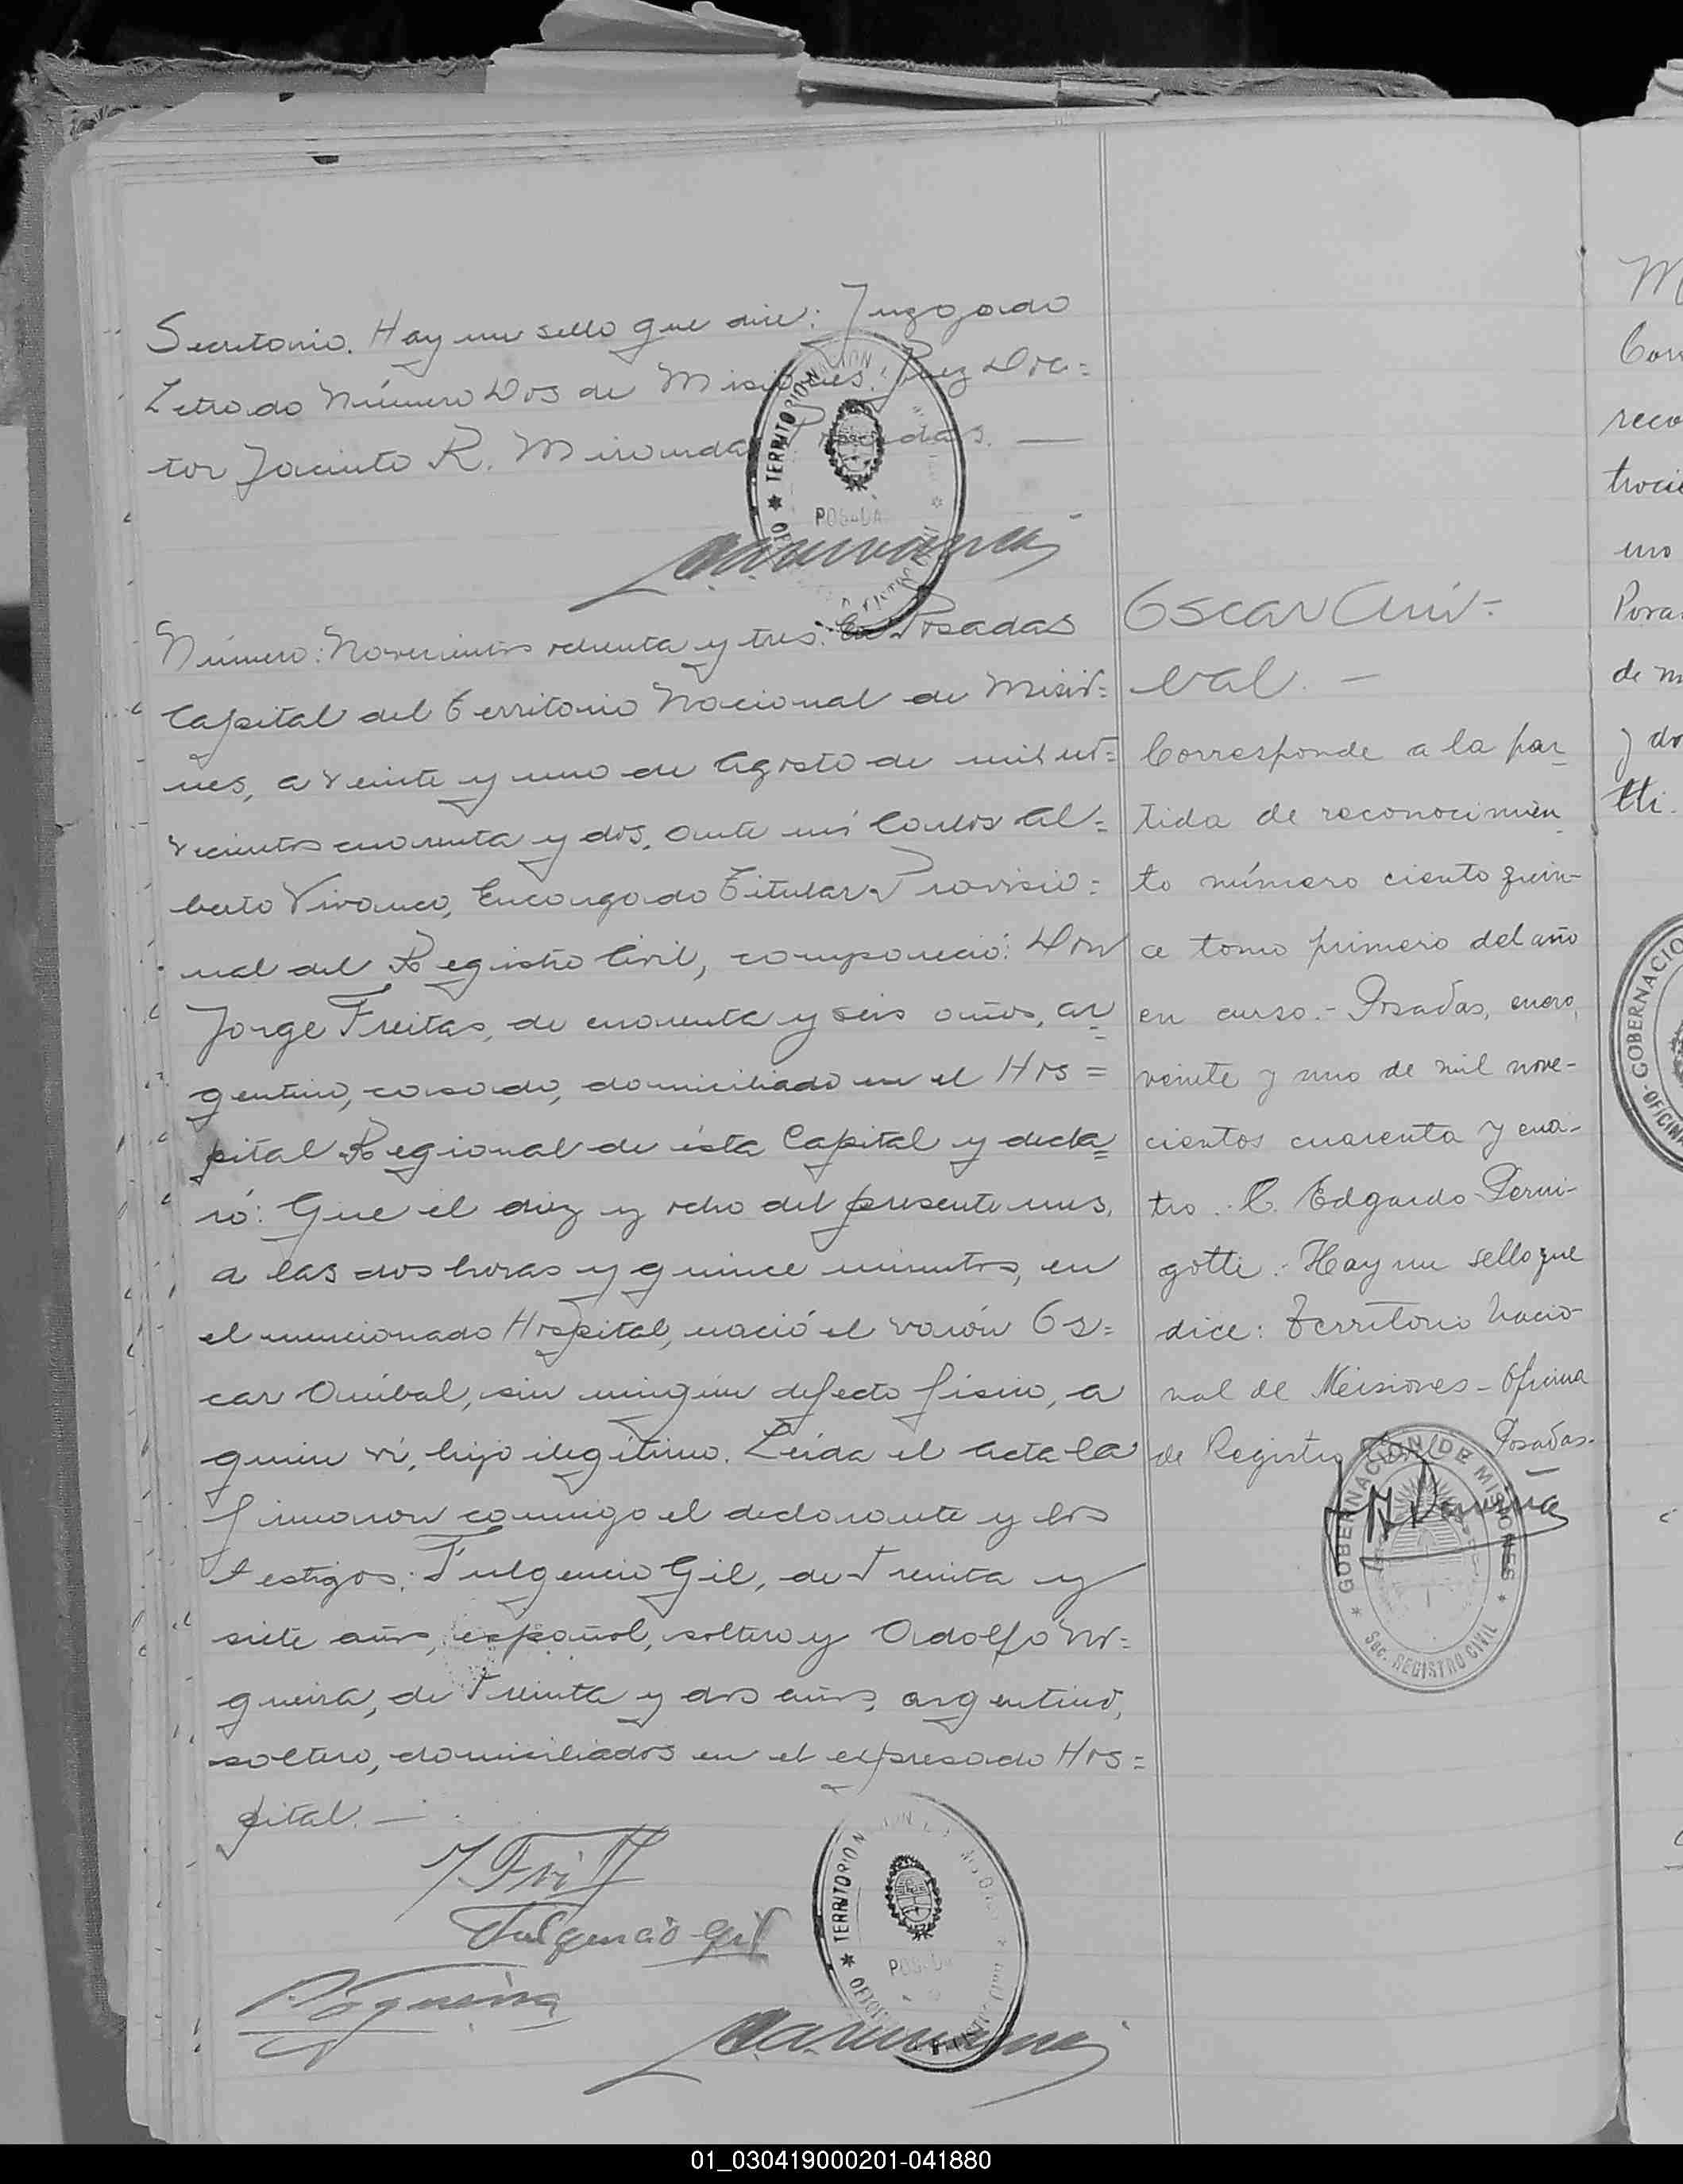 Secretario. Hay un sello que dice: Juzgado
Letrado Número Dos de Misiones. Juez Doc=
tor Jacinto R. Miranda. Posadas. —
TERRITORIO NACION
POSADA
Número: Novecientos ochenta y tres. En Posadas
Capital del Territorio Nacional de Misio=
nes, a veinte y uno de Agosto de mil no=
vecientos cuarenta y dos, ante mí Carlos Al=
berto Vivanco, Encargado Titular Provisio=
nal del Registro Civil, compareció: Don
Jorge Freitas, de cuarenta y seis años, ar=
gentino, casado, domiciliado en el Hos=
pital Regional de ésta Capital y decla=
ró: Que el diez y ocho del presente mes,
a las dos horas y quince minutos, en
el mencionado Hospital, nació el varón Os=
car Anibal, sin ningún defecto físico, a
quien ví, hijo ilegítimo. Leida el acta la
firmaron conmigo el declarante y los
testigos: Fulgencio Gil, de treinta y
siete años, español, soltero y Adolfo No=
gueira, de treinta y dos años, argentino,
soltero, domiciliados en el expresado Hos=
pital. —
Fulgencio Gil
Nogueira
TERRITORIO N
POSADA
Oscar Aní=
bal. —
Corresponde a la par
tida de reconocimien
to número ciento quin-
ce tomo primero del año
en curso.- Posadas, enero,
veinte y uno de mil nove-
cientos cuarenta y cua-
tro.- C. Edgardo Perni-
gotti.- Hay un sello que
dice: Territorio Nacio-
nal de Misiones - Oficina
de Registro Civil Posadas.-
GOBERNACION DE MISIONES
Sec. REGISTRO CIVIL
M
Corr
reco
trocie
uno
Posa
de m
y do
tti.
GOBERNACIO
OFICINA
01_030419000201-041880